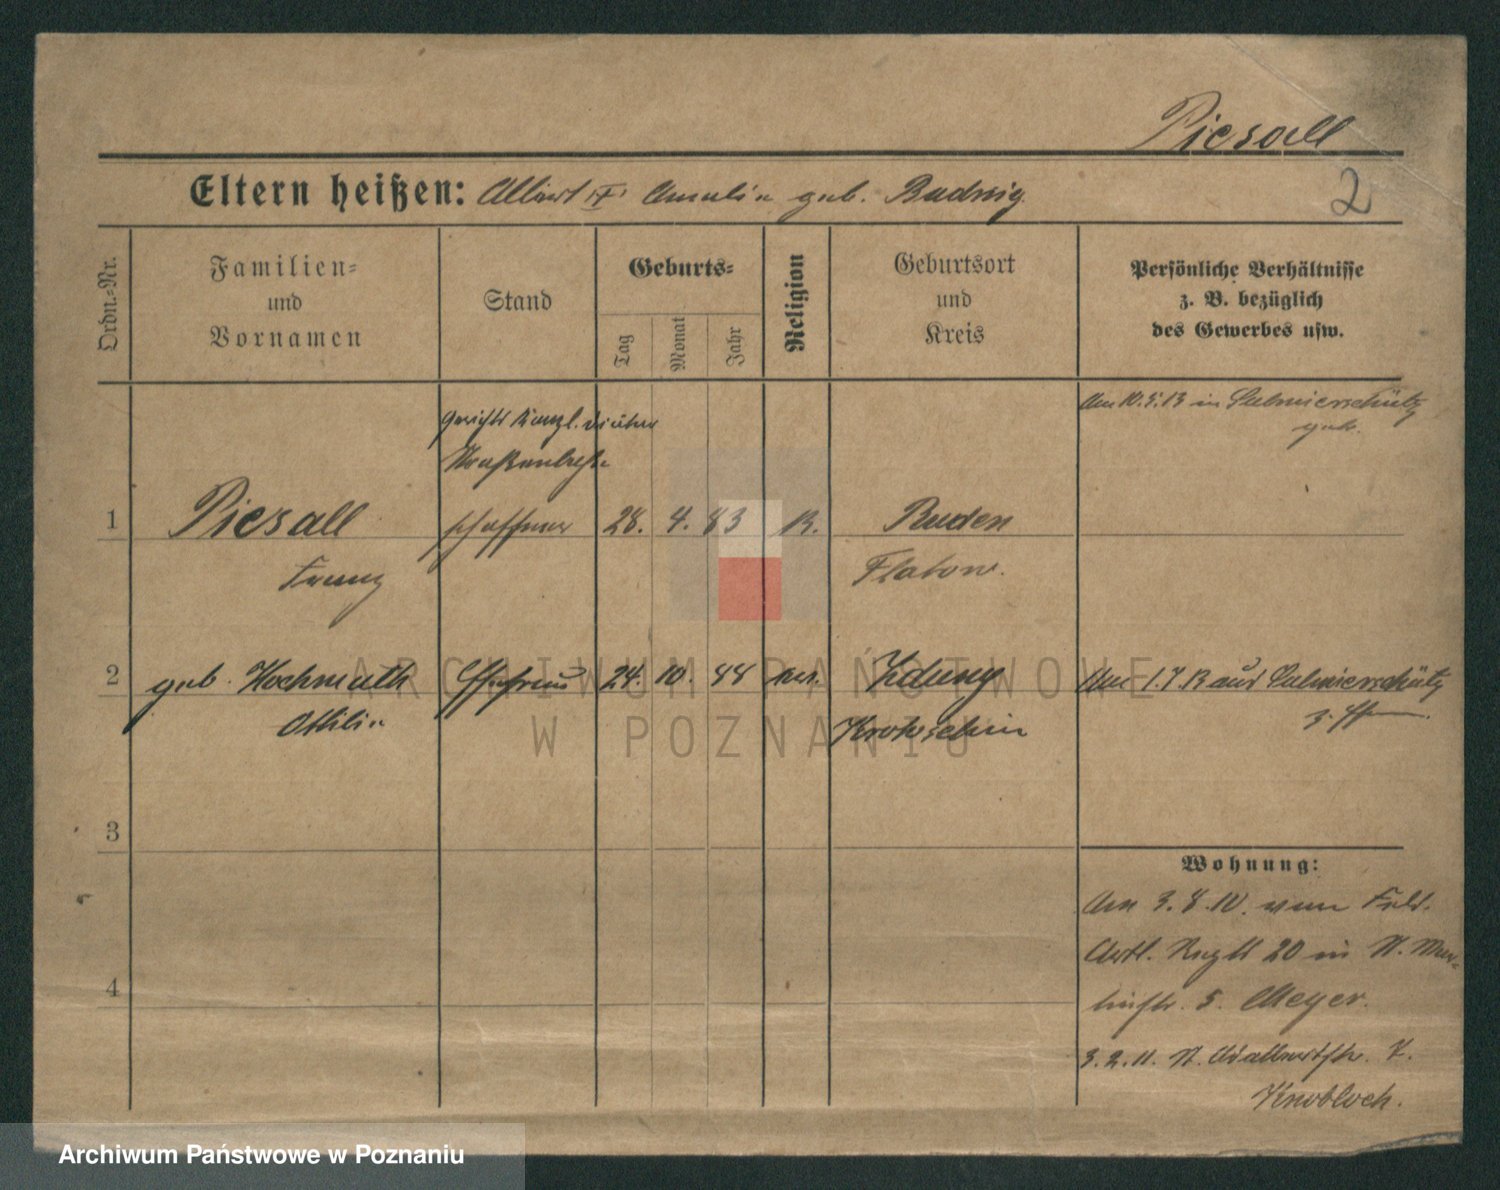 Piesall
Eltern heißen: Albert Amalie geb. Budnig
2
Ordn.-Nr.
Familien-
und
Vornamen
Stand
Geburts-
Tag
Monat
Jahr
Religion
Geburtsort
und
Kreis
Persönliche Verhältnisse
z. B. bezüglich
des Gewerbes usw.
Am 10.5.13 in Salmierschütz
geh.
Gerichts Kanzl. diätar
Straßenbahn
1
Piesall
schaffner
28.
4.
83
K.
Buden
Franz
Flatow.
2
geb. Hochmuth
Ehefrau
24.
10.
88
ev.
Zduny
Am 1.7.13 aus Salmierschütz
Ottilie
Krotoschin
z. Eh
ARCHIWUM PAŃSTWOWE
W POZNANIU
3
Wohnung:
Am 3.8.10. vom Feld.
Artl. Regtt 20 in St. Mar-
tinstr. 5. Meyer.
4
3.2.11. St. Adalbertstr. 7.
Knobloch.
Archiwum Państwowe w Poznaniu